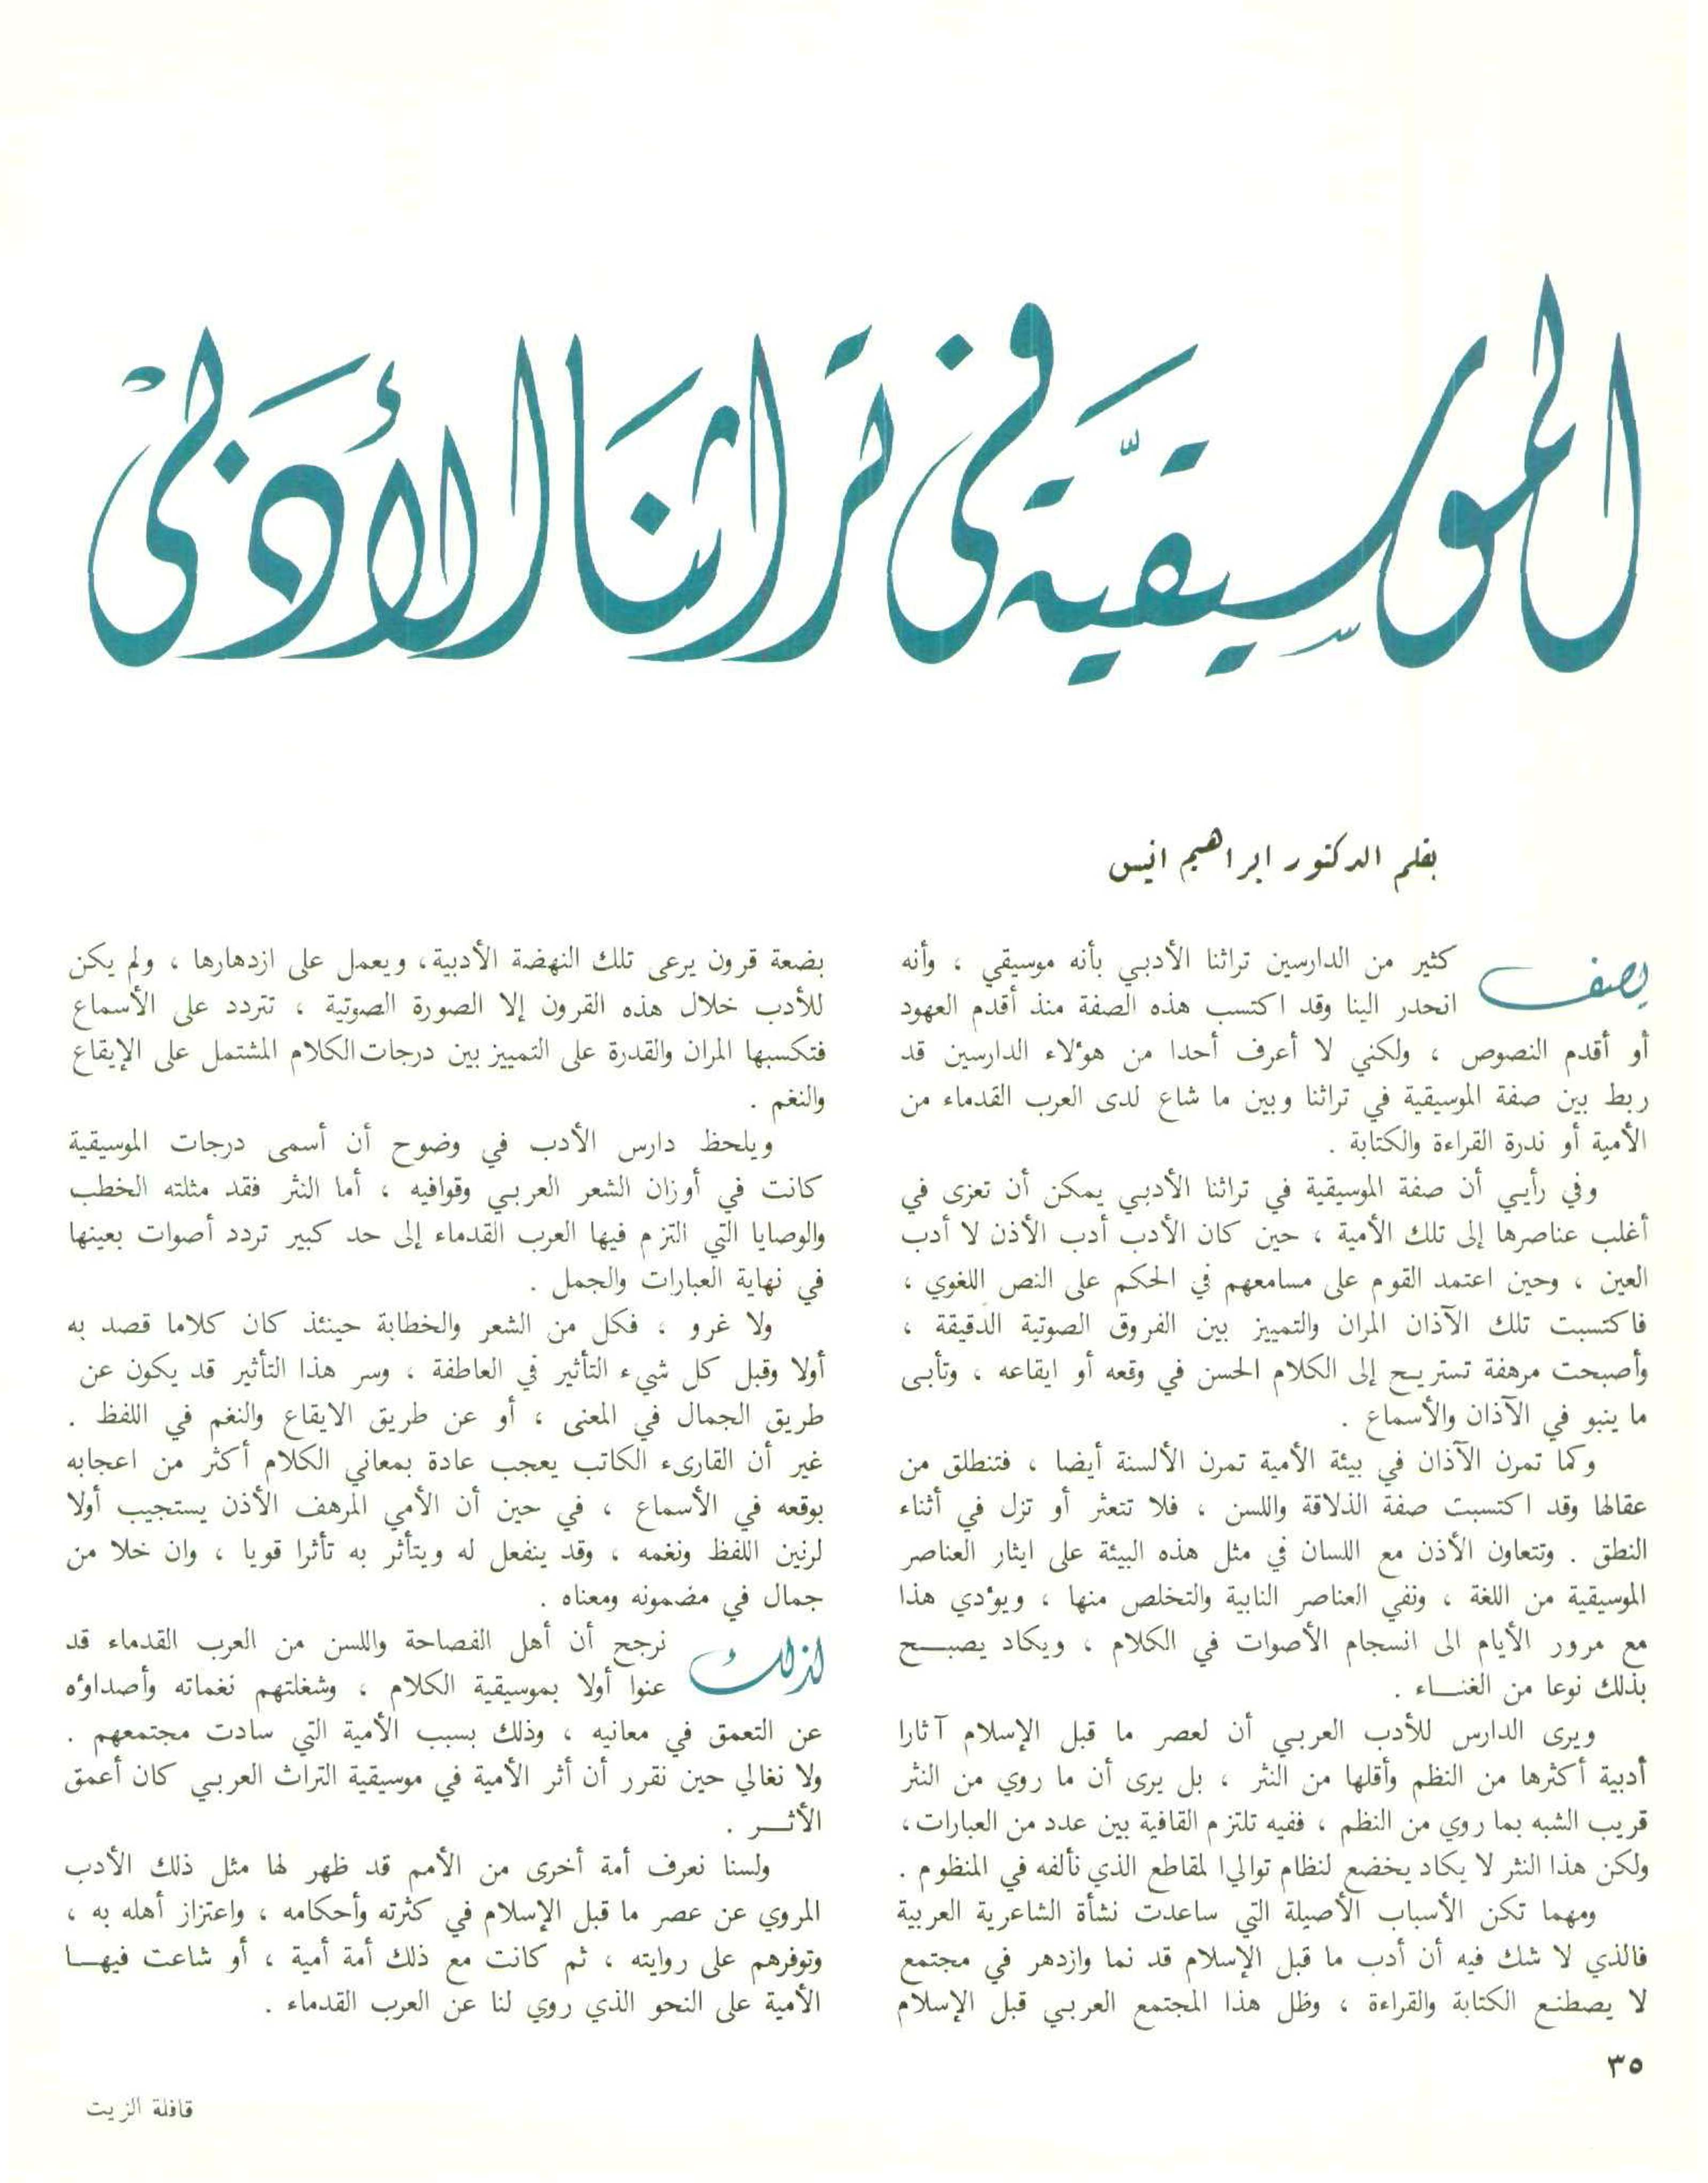 الموسيقيّة في تراثنا الأدبي
بقلم الدكتور ابراهيم انيس
يصف كثير من الدارسين تراثنا الأدبي بأنه موسيقي ، وأنه
انحدر الينا وقد اكتسب هذه الصفة منذ أقدم العهود
أو أقدم النصوص ، ولكني لا أعرف أحدا من هؤلاء الدارسين قد
ربط بين صفة الموسيقية في تراثنا وبين ما شاع لدى العرب القدماء من
الأمية أو ندرة القراءة والكتابة .
وفي رأيي أن صفة الموسيقية في تراثنا الأدبي يمكن أن تعزى في
أغلب عناصرها إلى تلك الأمية ، حين كان الأدب أدب الأذن لا أدب
العين ، وحين اعتمد القوم على مسامعهم في الحكم على النص اللغوي ،
فاكتسبت تلك الآذان المران والتمييز بين الفروق الصوتية الدقيقة ،
وأصبحت مرهفة تستريح إلى الكلام الحسن في وقعه أو ايقاعه ، وتأبى
ما ينبو في الآذان والأسماع .
وكما تمرن الآذان في بيئة الأمية تمرن الألسنة أيضا ، فتنطلق من
عقالها وقد اكتسبت صفة الذلاقة واللسن ، فلا تتعثر أو تزل في أثناء
النطق . وتتعاون الأذن مع اللسان في مثل هذه البيئة على ايثار العناصر
الموسيقية من اللغة ، ونفي العناصر النابية والتخلص منها ، ويؤدي هذا
مع مرور الأيام الى انسجام الأصوات في الكلام ، ويكاد يصبح
بذلك نوعا من الغناء .
ويرى الدارس للأدب العربي أن لعصر ما قبل الإسلام آثارا
أدبية أكثرها من النظم وأقلها من النثر ، بل يرى أن ما روي من النثر
قريب الشبه بما روي من النظم ، ففيه تلتزم القافية بين عدد من العبارات ،
ولكن هذا النثر لا يكاد يخضع لنظام توالي المقاطع الذي نألفه في المنظوم .
ومهما تكن الأسباب الأصيلة التي ساعدت نشأة الشاعرية العربية
فالذي لا شك فيه أن أدب ما قبل الإسلام قد نما وازدهر في مجتمع
لا يصطنع الكتابة والقراءة ، وظل هذا المجتمع العربي قبل الإسلام
بضعة قرون يرعى تلك النهضة الأدبية ، ويعمل على ازدهارها ، ولم يكن
للأدب خلال هذه القرون إلا الصورة الصوتية ، تتردد على الأسماع
فتكسبها المران والقدرة على التمييز بين درجات الكلام المشتمل على الإيقاع
والنغم .
ويلحظ دارس الأدب في وضوح أن أسمى درجات الموسيقية
كانت في أوزان الشعر العربي وقوافيه ، أما النثر فقد مثلته الخطب
والوصايا التي التزم فيها العرب القدماء إلى حد كبير تردد أصوات بعينها
في نهاية العبارات والجمل .
ولا غرو ، فكل من الشعر والخطابة حينئذ كان كلاما قصد به
أولا وقبل كل شيء التأثير في العاطفة ، وسر هذا التأثير قد يكون عن
طريق الجمال في المعنى ، أو عن طريق الايقاع والنغم في اللفظ .
غير أن القارىء الكاتب يعجب عادة بمعاني الكلام أكثر من اعجابه
بوقعه في الأسماع ، في حين أن الأمي المرهف الأذن يستجيب أولا
لرنين اللفظ ونغمه ، وقد ينفعل له ويتأثر به تأثرا قويا ، وان خلا من
جمال في مضمونه ومعناه .
لذلك نرجح أن أهل الفصاحة واللسن من العرب القدماء قد
عنوا أولا بموسيقية الكلام ، وشغلتهم نغماته وأصداؤه
عن التعمق في معانيه ، وذلك بسبب الأمية التي سادت مجتمعهم .
ولا نغالي حين نقرر أن أثر الأمية في موسيقية التراث العربي كان أعمق
الأثر .
ولسنا نعرف أمة أخرى من الأمم قد ظهر لها مثل ذلك الأدب
المروي عن عصر ما قبل الإسلام في كثرته وأحكامه ، واعتزاز أهله به ،
وتوفرهم على روايته ، ثم كانت مع ذلك أمة أمية ، أو شاعت فيها
الأمية على النحو الذي روي لنا عن العرب القدماء .
٣٥
قافلة الزيت